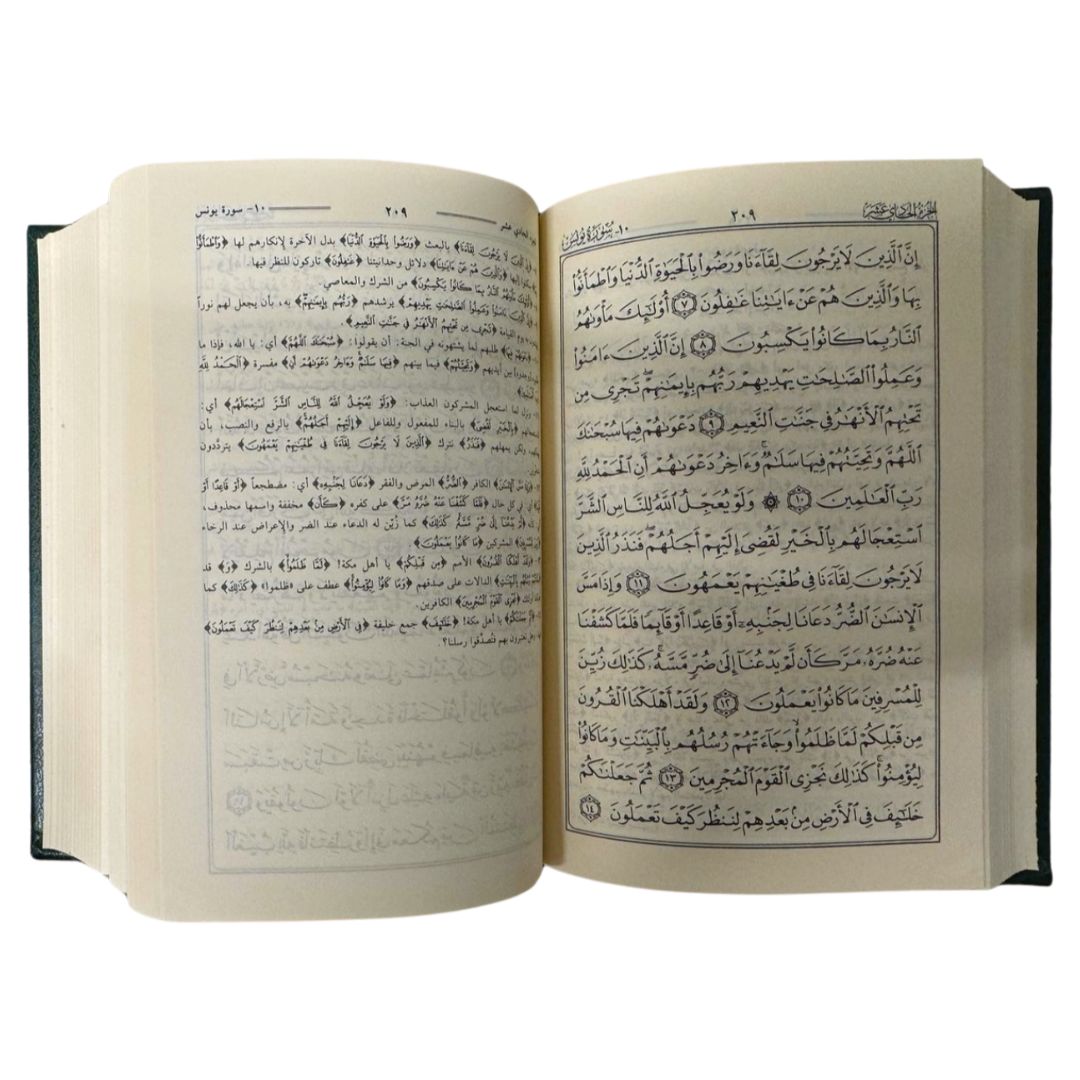 الجزء الحادي عشر ٢٠٩ ١٠- سورة يونس
إِنَّ ٱلَّذِينَ لَا يَرْجُونَ لِقَآءَنَا وَرَضُوا۟ بِٱلْحَيَوٰةِ ٱلدُّنْيَا وَٱطْمَأَنُّوا۟
بِهَا وَٱلَّذِينَ هُمْ عَنْ ءَايَٰتِنَا غَٰفِلُونَ ٧ أُو۟لَٰٓئِكَ مَأْوَىٰهُمُ
ٱلنَّارُ بِمَا كَانُوا۟ يَكْسِبُونَ ٨ إِنَّ ٱلَّذِينَ ءَامَنُوا۟
وَعَمِلُوا۟ ٱلصَّٰلِحَٰتِ يَهْدِيهِمْ رَبُّهُم بِإِيمَٰنِهِمْ ۖ تَجْرِى مِن
تَحْتِهِمُ ٱلْأَنْهَٰرُ فِى جَنَّٰتِ ٱلنَّعِيمِ ٩ دَعْوَىٰهُمْ فِيهَا سُبْحَٰنَكَ
ٱللَّهُمَّ وَتَحِيَّتُهُمْ فِيهَا سَلَٰمٌ ۚ وَءَاخِرُ دَعْوَىٰهُمْ أَنِ ٱلْحَمْدُ لِلَّهِ
رَبِّ ٱلْعَٰلَمِينَ ١٠ ۞ وَلَوْ يُعَجِّلُ ٱللَّهُ لِلنَّاسِ ٱلشَّرَّ
ٱسْتِعْجَالَهُم بِٱلْخَيْرِ لَقُضِىَ إِلَيْهِمْ أَجَلُهُمْ ۖ فَنَذَرُ ٱلَّذِينَ
لَا يَرْجُونَ لِقَآءَنَا فِى طُغْيَٰنِهِمْ يَعْمَهُونَ ١١ وَإِذَا مَسَّ
ٱلْإِنسَٰنَ ٱلضُّرُّ دَعَانَا لِجَنۢبِهِۦٓ أَوْ قَاعِدًا أَوْ قَآئِمًا فَلَمَّا كَشَفْنَا
عَنْهُ ضُرَّهُۥ مَرَّ كَأَن لَّمْ يَدْعُنَآ إِلَىٰ ضُرٍّ مَّسَّهُۥ ۚ كَذَٰلِكَ زُيِّنَ
لِلْمُسْرِفِينَ مَا كَانُوا۟ يَعْمَلُونَ ١٢ وَلَقَدْ أَهْلَكْنَا ٱلْقُرُونَ
مِن قَبْلِكُمْ لَمَّا ظَلَمُوا۟ ۙ وَجَآءَتْهُمْ رُسُلُهُم بِٱلْبَيِّنَٰتِ وَمَا كَانُوا۟
لِيُؤْمِنُوا۟ ۚ كَذَٰلِكَ نَجْزِى ٱلْقَوْمَ ٱلْمُجْرِمِينَ ١٣ ثُمَّ جَعَلْنَٰكُمْ
خَلَٰٓئِفَ فِى ٱلْأَرْضِ مِنۢ بَعْدِهِمْ لِنَنظُرَ كَيْفَ تَعْمَلُونَ ١٤
الحادي عشر ٢٠٩ ١٠- سورة يونس
﴿إِنَّ الَّذِينَ لَا يَرْجُونَ لِقَاءَنَا﴾ بالبعث ﴿وَرَضُوا بِالْحَيَوٰةِ الدُّنْيَا﴾ بدل الآخرة لإنكارهم لها ﴿وَاطْمَأَنُّوا
سكنوا إليها ﴿وَالَّذِينَ هُمْ عَنْ ءَايَٰتِنَا﴾ دلائل وحدانيتنا ﴿غَٰفِلُونَ﴾ تاركون للنظر فيها.
﴿أُولَٰئِكَ مَأْوَىٰهُمُ النَّارُ بِمَا كَانُوا يَكْسِبُونَ﴾ من الشرك والمعاصي.
ءَامَنُوا وَعَمِلُوا الصَّٰلِحَٰتِ يَهْدِيهِمْ﴾ يرشدهم ﴿رَبُّهُم بِإِيمَٰنِهِمْ﴾ به، بأن يجعل لهم نوراً
يوم القيامة ﴿تَجْرِي مِن تَحْتِهِمُ الْأَنْهَٰرُ فِي جَنَّٰتِ النَّعِيمِ﴾.
﴿دَعْوَىٰهُمْ فِيهَا﴾ طلبهم لما يشتهونه في الجنة: أن يقولوا: ﴿سُبْحَٰنَكَ اللَّهُمَّ﴾ أي: يا الله، فإذا ما
بين أيديهم ﴿وَتَحِيَّتُهُمْ﴾ فيما بينهم ﴿فِيهَا سَلَٰمٌ وَءَاخِرُ دَعْوَىٰهُمْ أَنِ﴾ مفسرة ﴿الْحَمْدُ لِلَّهِ
ونزل لما استعجل المشركون العذاب: ﴿وَلَوْ يُعَجِّلُ اللَّهُ لِلنَّاسِ الشَّرَّ اسْتِعْجَالَهُم﴾ أي:
﴿بِالْخَيْرِ لَقُضِيَ﴾ بالبناء للمفعول وللفاعل ﴿إِلَيْهِمْ أَجَلُهُمْ﴾ بالرفع والنصب، بأن
ولكن يمهلهم ﴿فَنَذَرُ﴾ نترك ﴿الَّذِينَ لَا يَرْجُونَ لِقَاءَنَا فِي طُغْيَٰنِهِمْ يَعْمَهُونَ﴾ يتردّدون
مَسَّ الْإِنسَٰنَ﴾ الكافر ﴿الضُّرُّ﴾ المرض والفقر ﴿دَعَانَا لِجَنۢبِهِ﴾ أي: مضطجعاً ﴿أَوْ قَاعِدًا أَوْ
أي في كل حال ﴿فَلَمَّا كَشَفْنَا عَنْهُ ضُرَّهُ مَرَّ﴾ على كفره ﴿كَأَن﴾ مخففة واسمها محذوف،
﴿لَّمْ يَدْعُنَا إِلَىٰ ضُرٍّ مَّسَّهُ كَذَٰلِكَ﴾ كما زُيِّن له الدعاء عند الضر والإعراض عند الرخاء
﴿زُيِّنَ لِلْمُسْرِفِينَ﴾ المشركين ﴿مَا كَانُوا يَعْمَلُونَ﴾.
﴿وَلَقَدْ أَهْلَكْنَا الْقُرُونَ﴾ الأمم ﴿مِن قَبْلِكُمْ﴾ يا أهل مكة! ﴿لَمَّا ظَلَمُوا﴾ بالشرك ﴿وَ﴾ قد
رُسُلُهُم بِالْبَيِّنَٰتِ﴾ الدالات على صدقهم ﴿وَمَا كَانُوا لِيُؤْمِنُوا﴾ عطف على «ظلموا» ﴿كَذَٰلِكَ﴾ كما
أهلكنا أولئك ﴿نَجْزِي الْقَوْمَ الْمُجْرِمِينَ﴾ الكافرين.
﴿ثُمَّ جَعَلْنَٰكُمْ﴾ يا أهل مكة! ﴿خَلَٰئِفَ﴾ جمع خليفة ﴿فِي الْأَرْضِ مِنۢ بَعْدِهِمْ لِنَنظُرَ كَيْفَ تَعْمَلُونَ﴾
وهل تعتبرون بهم فتُصدِّقوا رسلنا؟.